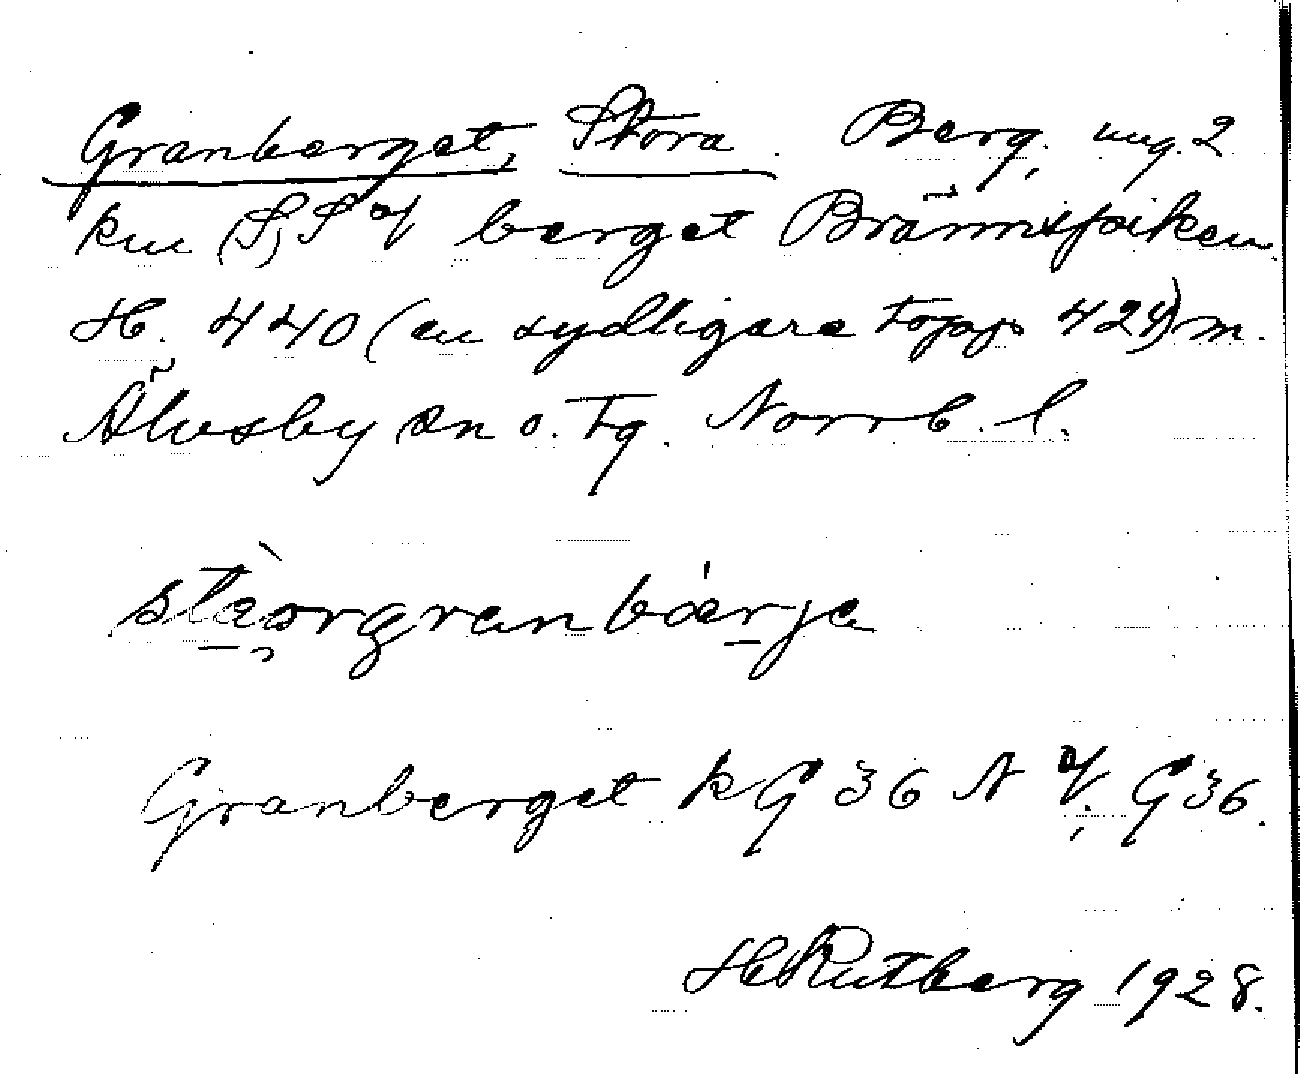 Granberget, Stora. Berg, ung. 2
km (S) S of berget Brännspiken
H. 440 (en sydligare topp 424) m.
Älvsby sn o. tg. Norrb. l.
stäorgranbärja
Granberget kG 36 N of, G 36.
H Rutberg 1928.